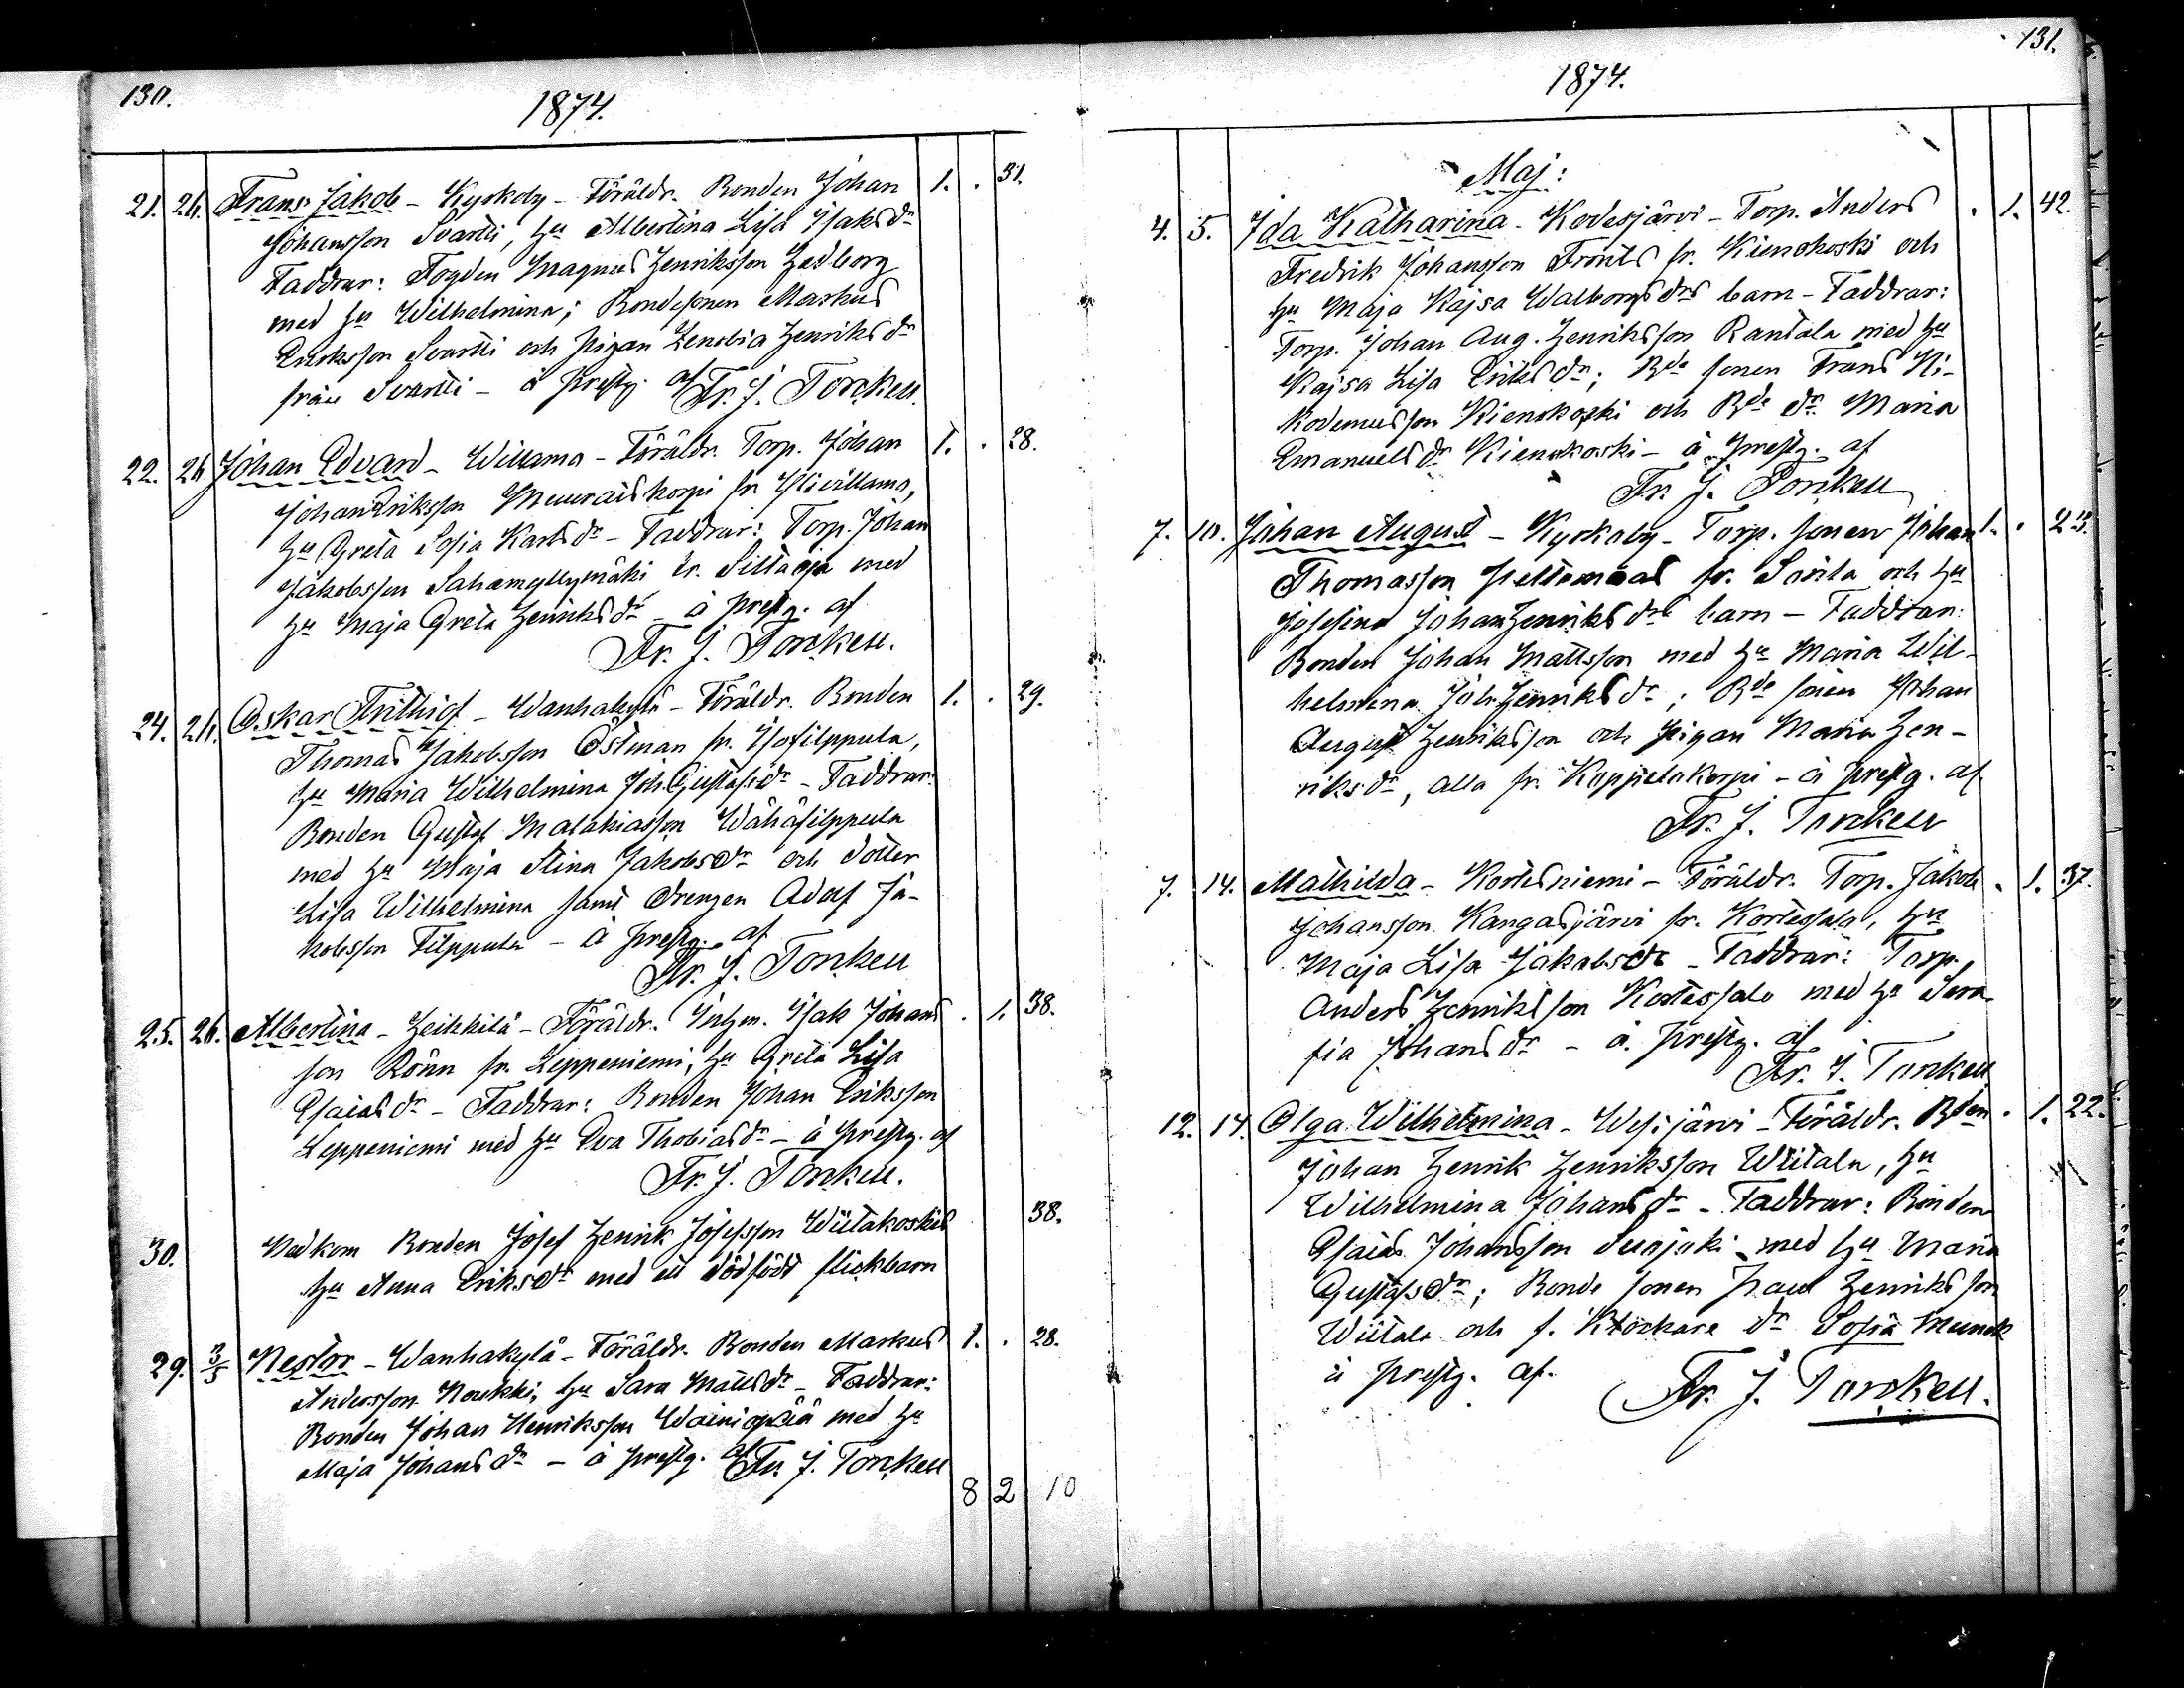 130.
1874.
21. 26. Frans Jakob - Kyrkoby - Föräldr. Bonden Johan 1. . 31.
Johansson Svartti, hu Albertina Lisa Isaksdr
Faddrar: Fogden Magnus Henriksson Hedborg
med hu Wilhelmina; Bondesonen Markus
Eriksson Svartti och pigan Zenobia Henriksdr
från Svartti - å prestg. af Fr. J. Torckell.
22. 26. Johan Edvard - Willamo - Föräldr. Torp. Johan 1. . 28.
Johan Eriksson fr. Yliwillamo,
hu Greta Sofia Karlsdr - Faddrar: Torp. Johan
Jakobsson Sahamyllymäki fr. med
hu Maja Greta Henriksdr - å prestg. af
Fr. J. Torckell.
24. 26. Oskar Frithiof - Wanhakylä - Föräldr. Bonden 1. . 29.
Thomas Jakobsson Östman fr. Isofilppula,
hu Maria Wilhelmina Joh. Gustafsdr - Faddrar:
Bonden Gustaf Malakiasson Wähäfilppula
med hu Maja Stina Jakobsdr och dotter
Lisa Wilhelmina samt drengen Adolf Ja-
kobsson Filppula - å prestg. af
Fr. J. Torckell
25. 26. Albertina - Heikkilä - Föräldr. Inhm. Isak Johans . 1. 38.
son Rönn fr. Leppeniemi, hu Greta Lisa
Esaiasdr - Faddrar: Bonden Johan Eriksson
Leppeniemi med hu Eva Thobiasdr - å prestg. af
Fr. J. Torckell.
30. Nedkom Bonden Josef Henrik Josefsson Wiitakoskis 38.
hu Anna Eriksdr med ett dödfödt flickbarn
29. 3/5 Nestor - Wanhakylä - Föräldr. Bonden Markus 1. . 28.
Andersson Noukki, hu Sara Mattsdr - Faddrar:
Bonden Johan Henriksson Wainionpää med hu
Maja Johansdr - å prestg. af Fr. J. Torckell
8 2 10
131.
1874.
Maj:
4. 5. Ida Katharina - Kodesjärvi - Torp. Anders . 1. 42.
Fredrik Johansson Fronts fr. Kienokoski och
hu Maja Kajsa Walborgsdrs barn - Faddrar:
Torp. Johan Aug. Henriksson Rantala med hu
Kajsa Lisa Eriksdr; Bde sonen Frans Ni-
kodemusson Kienokoski och Bde dr Maria
Emanuelsdr Kienokoski - å prestg. af
Fr. J. Torckell
7. 10. Johan August - Kyrkoby - Torp. sonen Johan 1. . 23.
Thomasson Peltomaas fr. Santa och hu
Josefina Johan Henriksdrs barn - Faddrar:
Bonden Johan Mattsson med hu Maria Wil-
helmina Joh. Henriksdr; Bde sonen Johan
August Henriksson och pigan Maria Hen-
riksdr, alla fr. Koppelokorpi - å prestg. af
Fr. J. Torckell
7. 14. Mathilda - Kortesniemi - Föräldr. Torp. Jakob . 1. 37.
Johansson Kangasjärvi fr. Kortessalo, hu
Maja Lisa Jakobsdr - Faddrar: Torp.
Anders Henriksson Kortessalo med hu Sera-
fia Johansdr - å prestg. af
Fr. J. Torckell
12. 14. Olga Wilhelmina - Wesijärvi - Föräldr. Bden . 1. 22.
Johan Henrik Henriksson Wiitala, hu
Wilhelmina Johansdr - Faddrar: Bonden
Esaias Johansson med hu Maria
Gustafsdr; Bonde sonen Paul Henriksson
Wiitala och f. Klockare dr Sofia Munck
å prestg. af.
Fr. J. Torckell.